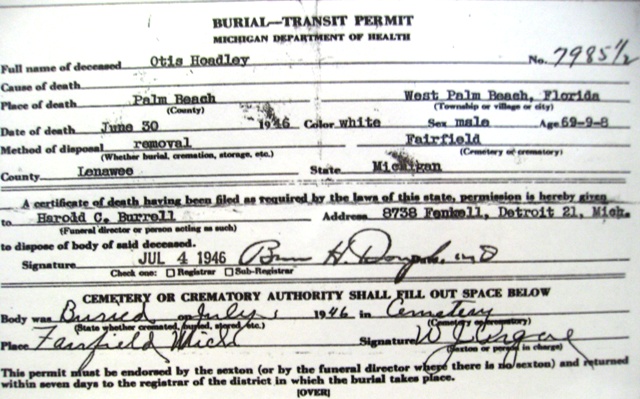 BURIAL—TRANSIT PERMIT
MICHIGAN DEPARTMENT OF HEALTH
Full name of deceased Otis Hoadley No. 7985 1/2
Cause of death
Place of death Palm Beach West Palm Beach, Florida
(County) (Township or village or city)
Date of death June 30 1946 Color white Sex male Age 69-9-8
Method of disposal removal Fairfield
(Whether burial, cremation, storage, etc.) (Cemetery or crematory)
County Lenawee State Michigan
A certificate of death having been filed as required by the laws of this state, permission is hereby given
to Harold C. Burrell Address 8738 Fenkell, Detroit 21, Mich.
(Funeral director or person acting as such)
to dispose of body of said deceased.
Signature JUL 4 1946
Check one: Registrar Sub-Registrar
CEMETERY OR CREMATORY AUTHORITY SHALL FILL OUT SPACE BELOW
Body was Buried on July 1946 in Cemetery
(State whether cremated, buried, stored, etc.) (Cemetery or crematory)
Place Fairfield Mich Signature
(Sexton or person in charge)
This permit must be endorsed by the sexton (or by the funeral director where there is no sexton) and returned
within seven days to the registrar of the district in which the burial takes place.
[OVER]